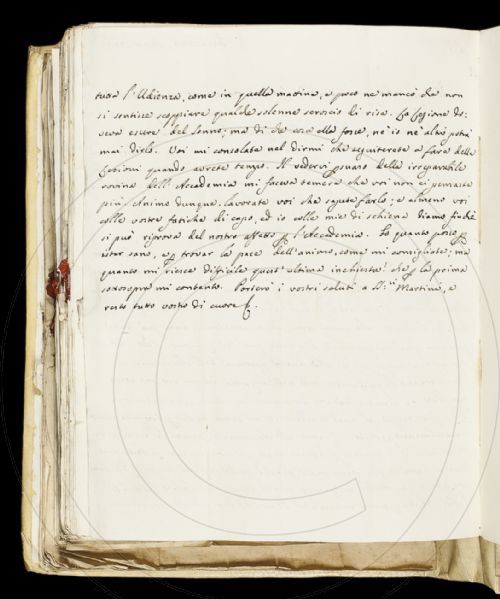 tutta l'Udienza, come in quella mattina, e poco ne mancò che non
si sentisse scoppiare qualche solenne scroscio di risa. La Lezione do:
veva essere del Senno; ma di che cosa ella fosse, nè io nè altri potrà
mai dirlo. Voi mi consolate nel dirmi che seguiterete a fare delle
Lezioni quando avrete tempo. Il vedervi penare della irreparabile
rovina dell'Accademia mi faceva temere che voi non ci pensaste
più. Animo dunque. lavorate voi che sapete farlo; e almeno voi
colle vostre fatiche di capo, ed io colle mie di schiena diamo finchè
si può riprova del nostro affetto p l'Accademia. Io quanto posso p
star sano, e p trovar la pace dell'animo, come mi consigliate; ma
quanto mi riesce difficile quest'ultima inchiesta! che p la prima
sottosopra mi contento. Porterò i vostri saluti a Sr. Martini, e
resto tutto vostro di cuore